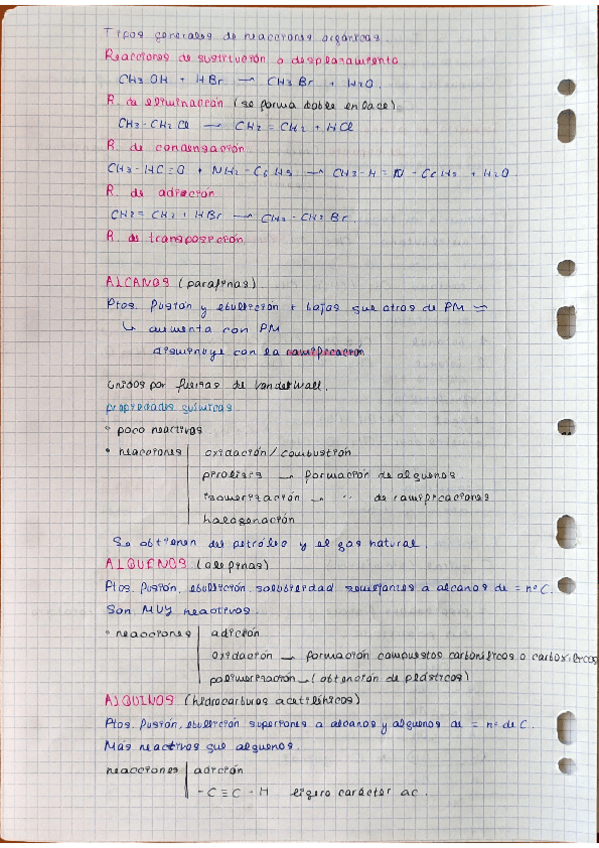 Tipos generales de reacciones orgánicas.
Reacciones de sustitución o desplazamiento
CH3OH + HBr → CH3Br + H2O.
R. de eliminación (se forma doble enlace)
CH3-CH2Cl → CH2=CH2 + HCl
R. de condensación.
CH3-HC=O + NH2-C6H5 → CH3-H=N-C6H5 + H2O
R. de adición.
CH2=CH2 + HBr → CH3-CH2Br.
R. de transposición
ALCANOS (parafinas)
Ptos. fusión y ebullición + bajos que otros de PM =
↳ aumenta con PM
disminuye con la ramificación
Unidos por fuerzas de Vanderwall.
propiedades químicas
° poco reactivos
° reacciones | oxidación/combustión
pirólisis → formación de alquenos.
isomerización → " de ramificaciones
halogenación
Se obtienen del petróleo y el gas natural.
ALQUENOS (olefinas)
Ptos. fusión, ebullición, solubilidad semejantes a alcanos de = nº C.
Son MUY reactivos.
° reacciones | adición
oxidación → formación compuestos carbonílicos o carboxílicos
polimerización → (obtención de plásticos)
ALQUINOS (hidrocarburos acetilénicos)
Ptos. fusión, ebullición superiores a alcanos y alquenos de = nº de C.
Más reactivos que alquenos.
reacciones | adición
-C≡C-H ligero carácter ac.